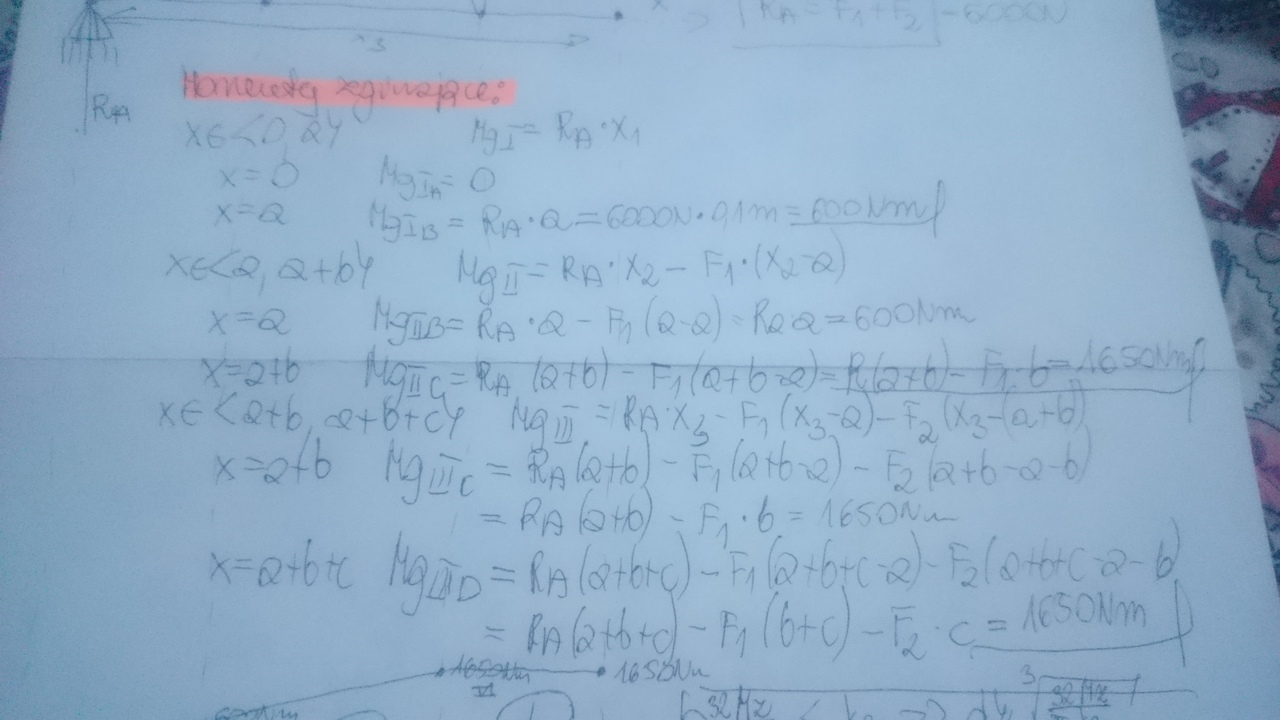 x => RA = F1+F2 = 6000N
x3
RA
Momenty zginające:
x∈<0, a> MgI = RA·x1
x=0 MgIA = 0
x=a MgIB = RA·a = 6000N·0,1m = 600Nm
x∈<a, a+b> MgII = RA·x2 - F1·(x2-a)
x=a MgIIB = RA·a - F1(a-a) = Ra·a = 600Nm
x=a+b MgIIC = RA(a+b) - F1(a+b-a) = R(a+b) - F1·b = 1650Nm
x∈<a+b, a+b+c> MgIII = RA·x3 - F1(x3-a) - F2(x3-(a+b)
x=a+b MgIIIC = RA(a+b) - F1(a+b-a) - F2(a+b-a-b)
= RA(a+b) - F1·b = 1650Nm
x=a+b+c MgIIID = RA(a+b+c) - F1(a+b+c-a) - F2(a+b+c-a-b)
= RA(a+b+c) - F1(b+c) - F2·c = 1650Nm
1650Nm 1650Nm
600Nm 32Mz 3 32Mz